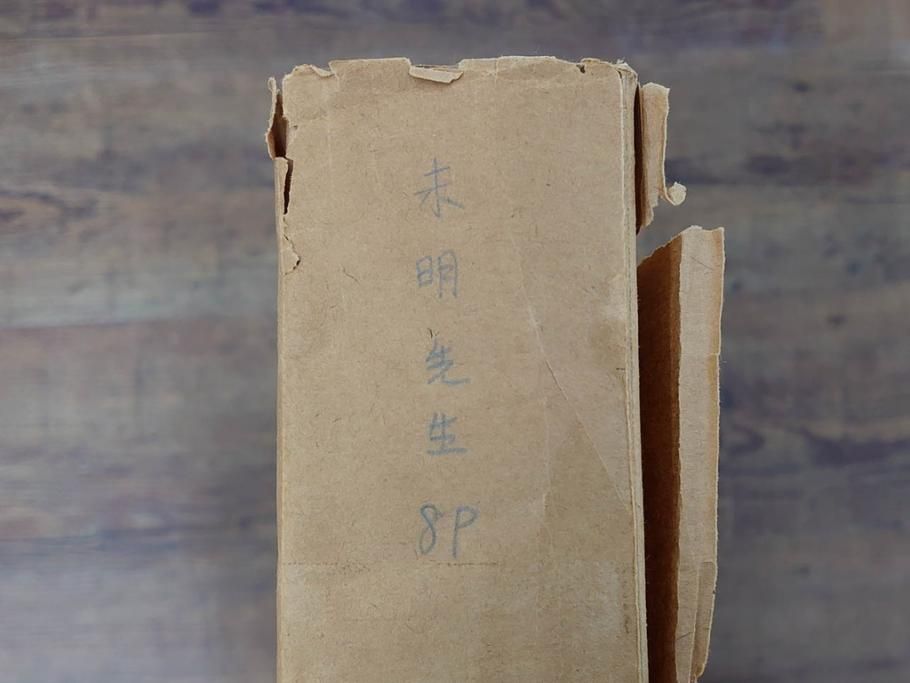 未明先生 8P